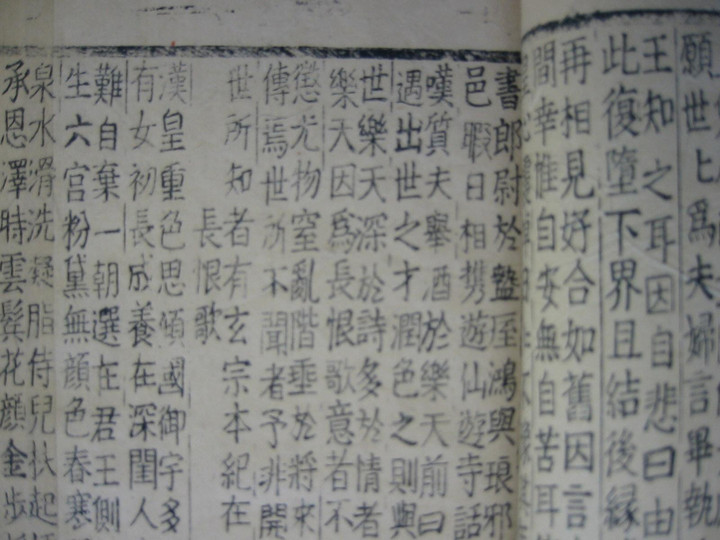 願世上爲夫婦言畢執
王知之耳因自悲曰由
此復墮下界且結後縁
再相見好合如舊因言
間幸惟自安無自苦耳
書郎尉於盩厔鴻與琅邪
邑暇日相携遊仙遊寺話
嘆質夫舉酒於樂天前曰
遇出世之才潤色之則與
世樂天深於詩多於情者
樂天因爲長恨歌意者不
懲尤物窒亂階垂於將來
傳焉世所不聞者予非開
世所知者有玄宗本紀在
長恨歌
漢皇重色思傾國御宇多
有女初長成養在深閨人
難自棄一朝選在君王側
生六宫粉黛無顔色春寒
泉水滑洗凝脂侍兒扶起
承恩澤時雲鬂花顔金步